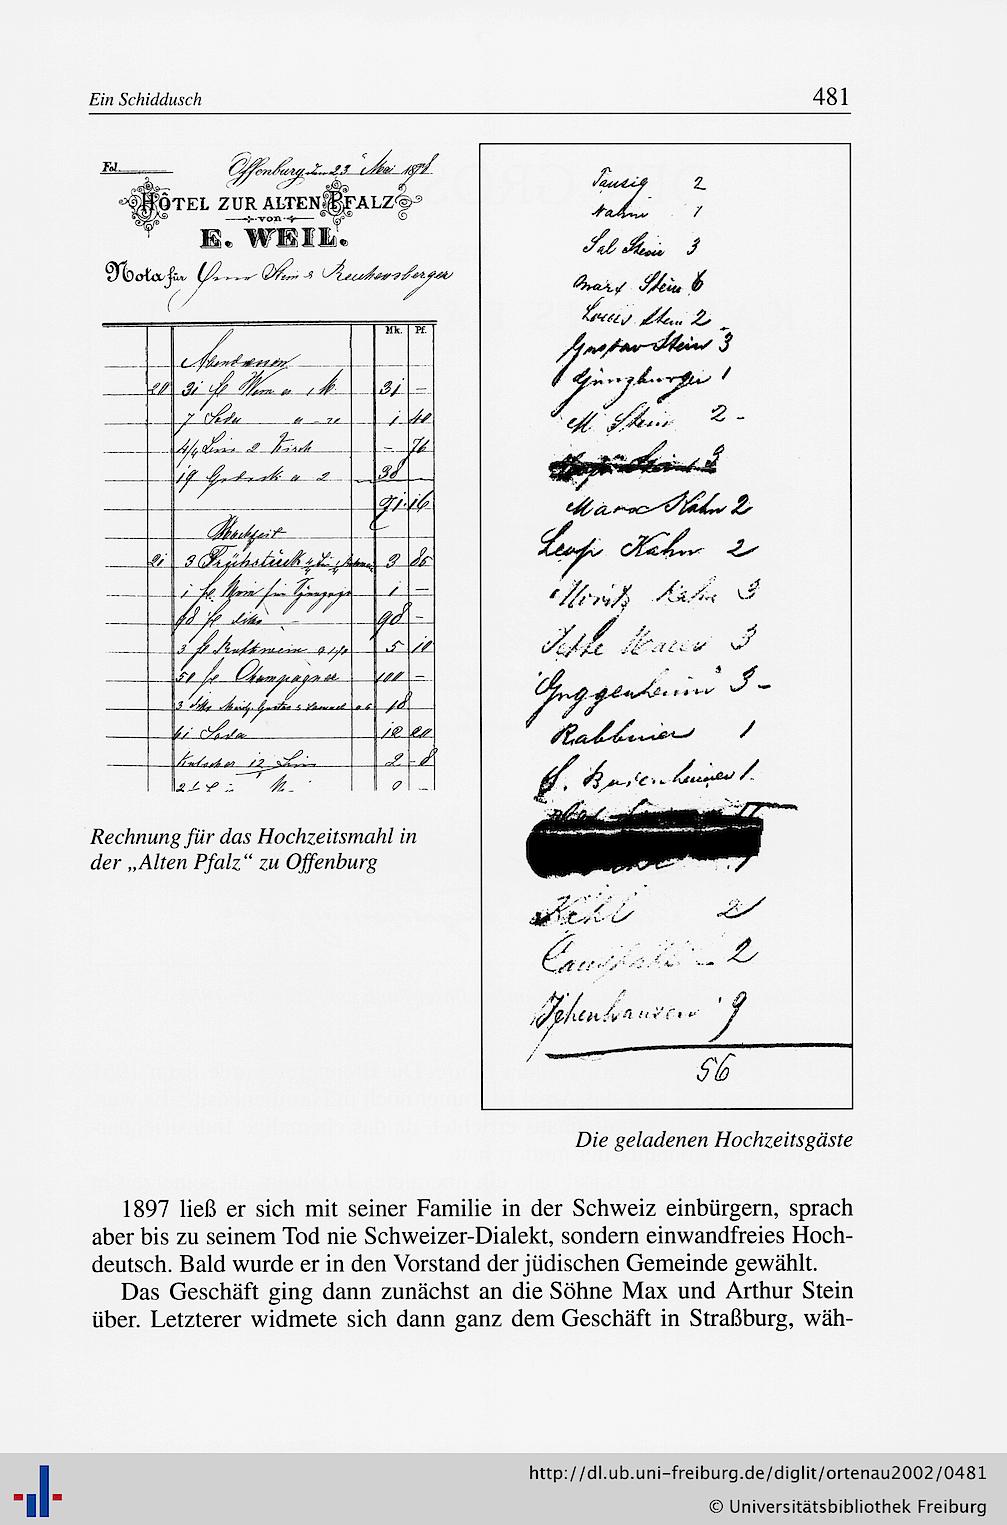 Ein Schiddusch 481
Fol.
Offenburg, den 23 Mai 1878
HÔTEL ZUR ALTEN PFALZ
von
E. WEIL.
Nota für Herrn Stein & Reichensberger
Mk. Pf.
Abendessen
20 31 fl Wein a 1 M. 31 —
7 Soda 1 40
2 Kirsch — 76
19 Gedeck a 2 38
71. 16
Hochzeit
21 3 Frühstück 3 86
1 fl. Wein für Synagoge 1 —
98 fl dito — 98 —
3 fl Rothwein 5 10
50 fl. Champagner 100 —
3 18
61 Soda 12 20
Kutscher 12 2 - 8
Rechnung für das Hochzeitsmahl in
der „Alten Pfalz“ zu Offenburg
Tausig 2
Nahm 1
Sal Stein 3
Marx Stein 6
Louis Stein 2
Gustav Stein 3
Günzburger 1
M. Stein 2 -
Stein 3
Marx Kahn 2
Leop Kahn 2
Moritz Kahn 3
Jette 3
Guggenheim 3 -
Rabbiner 1
1.
Kehl 2
Cannstatt 2
Ichenhausen 9
56
Die geladenen Hochzeitsgäste
1897 ließ er sich mit seiner Familie in der Schweiz einbürgern, sprach
aber bis zu seinem Tod nie Schweizer-Dialekt, sondern einwandfreies Hoch-
deutsch. Bald wurde er in den Vorstand der jüdischen Gemeinde gewählt.
Das Geschäft ging dann zunächst an die Söhne Max und Arthur Stein
über. Letzterer widmete sich dann ganz dem Geschäft in Straßburg, wäh-
http://dl.ub.uni-freiburg.de/diglit/ortenau2002/0481
© Universitätsbibliothek Freiburg